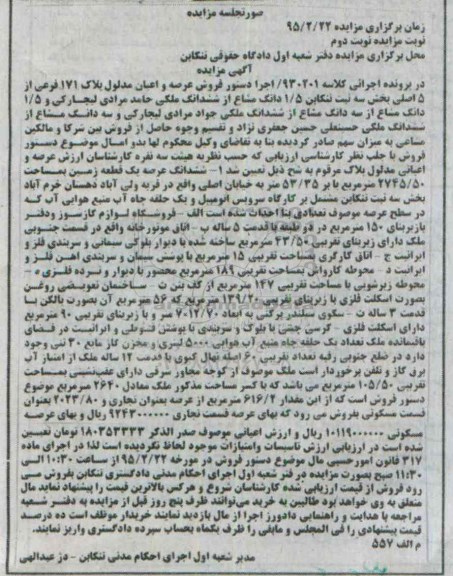 صورتجلسه مزایده
زمان برگزاری مزایده ۹۵/۲/۲۲
نوبت مزایده نوبت دوم
محل برگزاری مزایده دفتر شعبه اول دادگاه حقوقی تنکابن
آگهی مزایده
در پرونده اجرائی کلاسه ۹۳۰۲۰۱/ اجرا دستور فروش عرصه و اعیان مدلول پلاک ۱۷۱ فرعی از
۵ اصلی بخش سه ثبت تنکابن ۱/۵ دانگ مشاع از ششدانگ ملکی حامد مرادی لیچارکی و ۱/۵
دانگ مشاع از سه دانگ مشاع از ششدانگ ملکی جواد مرادی لیچارکی و سه دانگ مشاع از
ششدانگ ملکی حسینعلی حسین جعفری نژاد و تقسیم وجوه حاصل از فروش بین شرکا و مالکین
مشاعی به میزان سهم صادر گردیده بنا به تقاضای وکیل محکوم لها بدو اموال موضوع دستور
فروش با جلب نظر کارشناسی ارزیابی که حسب نظریه هیئت سه نفره کارشناسان ارزش عرصه و
اعیانی مدلول پلاک مرقوم به شرح ذیل تعیین شد ۱- ششدانگ عرصه یک قطعه زمین بمساحت
۲۷۴۵/۵۰ مترمربع با بر ۵۳/۳۵ متر به خیابان اصلی واقع در قریه ولی آباد دهستان خرم آباد
بخش سه ثبت تنکابن مشتمل بر کارگاه سرویس اتومبیل و یک حلقه چاه آب منبع هوایی آب که
در سطح عرصه موصوف تعدادی بنا احداث شده است الف - فروشگاه لوازم گازسوز ودفتر
بازیربنای ۱۵۰ مترمربع در دو طبقه با قدمت ۵ ساله ب - اتاق موتورخانه واقع در قسمت جنوبی
ملک دارای زیربنای تقریبی ۴۳/۵۰ مترمربع ساخته شده با دیوار بلوکی سیمانی و سربندی فلز و
ایرانیت ج - اتاق کارگری بمساحت تقریبی ۱۵ مترمربع با پوشش سیمان و سربندی آهن فلز و
ایرانیت د - محوطه کارواش بمساحت تقریبی ۱۸۹ مترمربع محصور با دیوار و نرده فلزی ه -
محوطه زیرشویی با مساحت تقریبی ۱۴۷ مترمربع از کف بتن ث - ساختمان تعویض روغن
بصورت اسکلت فلزی با زیربنای تقریبی ۱۳۷/۲۰ مترمربع که ۵۶ مترمربع آن بصورت بالکن با
قدمت ۳ ساله ث - سکوی سیلندر پرکنی به ابعاد ۷*۱۲/۷۰ متر و با زیربنای تقریبی ۹۰ مترمربع
دارای اسکلت فلزی - کرسی چشی با بلوک و سربندی با پوشش قنوطی و ایرانیت در فضای
باقیمانده ملک تعداد یک حلقه چاه منبع آب هوایی ۵۰۰۰ لیتری و مخزن گاز مایع ۳۰ تنی وجود
دارد در ضلع جنوبی رقبه تعداد تقریبی ۶۰ اصله نهال کیوی با قدمت ۱۲ ساله ملک از امتیاز آب
برق گاز و تلفن برخوردار است ملک موصوف از کوچه مجاور شرقی دارای عقب نشینی بمساحت
تقریبی ۱۰۵/۵۰ مترمربع می باشد که با کسر مساحت مذکور ملک معادل ۲۶۴۰ مترمربع موضوع
دستور فروش است که از این مقدار ۶۱۶/۲ مترمربع از عرصه بعنوان تجاری و ۲۰۲۳/۸۰ بعنوان
قسمت مسکونی بفروش می رود که بهای عرصه قسمت تجاری ۹۲۴۳۰۰۰۰۰۰ ریال و بهای عرصه
مسکونی ۱۰۱۱۹۰۰۰۰۰۰ ریال و ارزش اعیانی موصوف صدر الذکر ۱۸۰۳۵۳۳۳۳ تومان تعیین
شده است در ارزیابی ارزش تاسیسات وامتیازات موجود لحاظ نگردیده است لذا در اجرای ماده
۳۱۷ قانون امورحسبی مال موضوع دستور فروش در مورخه ۹۵/۲/۲۲ از ساعت ۱۰:۳۰ الی
۱۱:۳۰ صبح بصورت مزایده در دفتر شعبه اول اجرای احکام مدنی دادگستری تنکابن بفروش می
رود فروش از قیمت ارزیابی شده کارشناسان شروع و هرکس بالاترین قیمت را پیشنهاد نماید مال
متعلق به وی خواهد بود طالبین به خرید می توانند ظرف پنج روز قبل از مزایده به دفتر شعبه
مراجعه با هدایت و راهنمایی دادورز اجرا از مال بازدید نمایند خریدار موظف است ده درصد
قیمت پیشنهادی را فی المجلس و مابقی را ظرف یکماه بحساب سپرده دادگستری واریز نمایند.
م الف ۵۵۷
مدیر شعبه اول اجرای احکام مدنی تنکابن - دژ عبدالهی